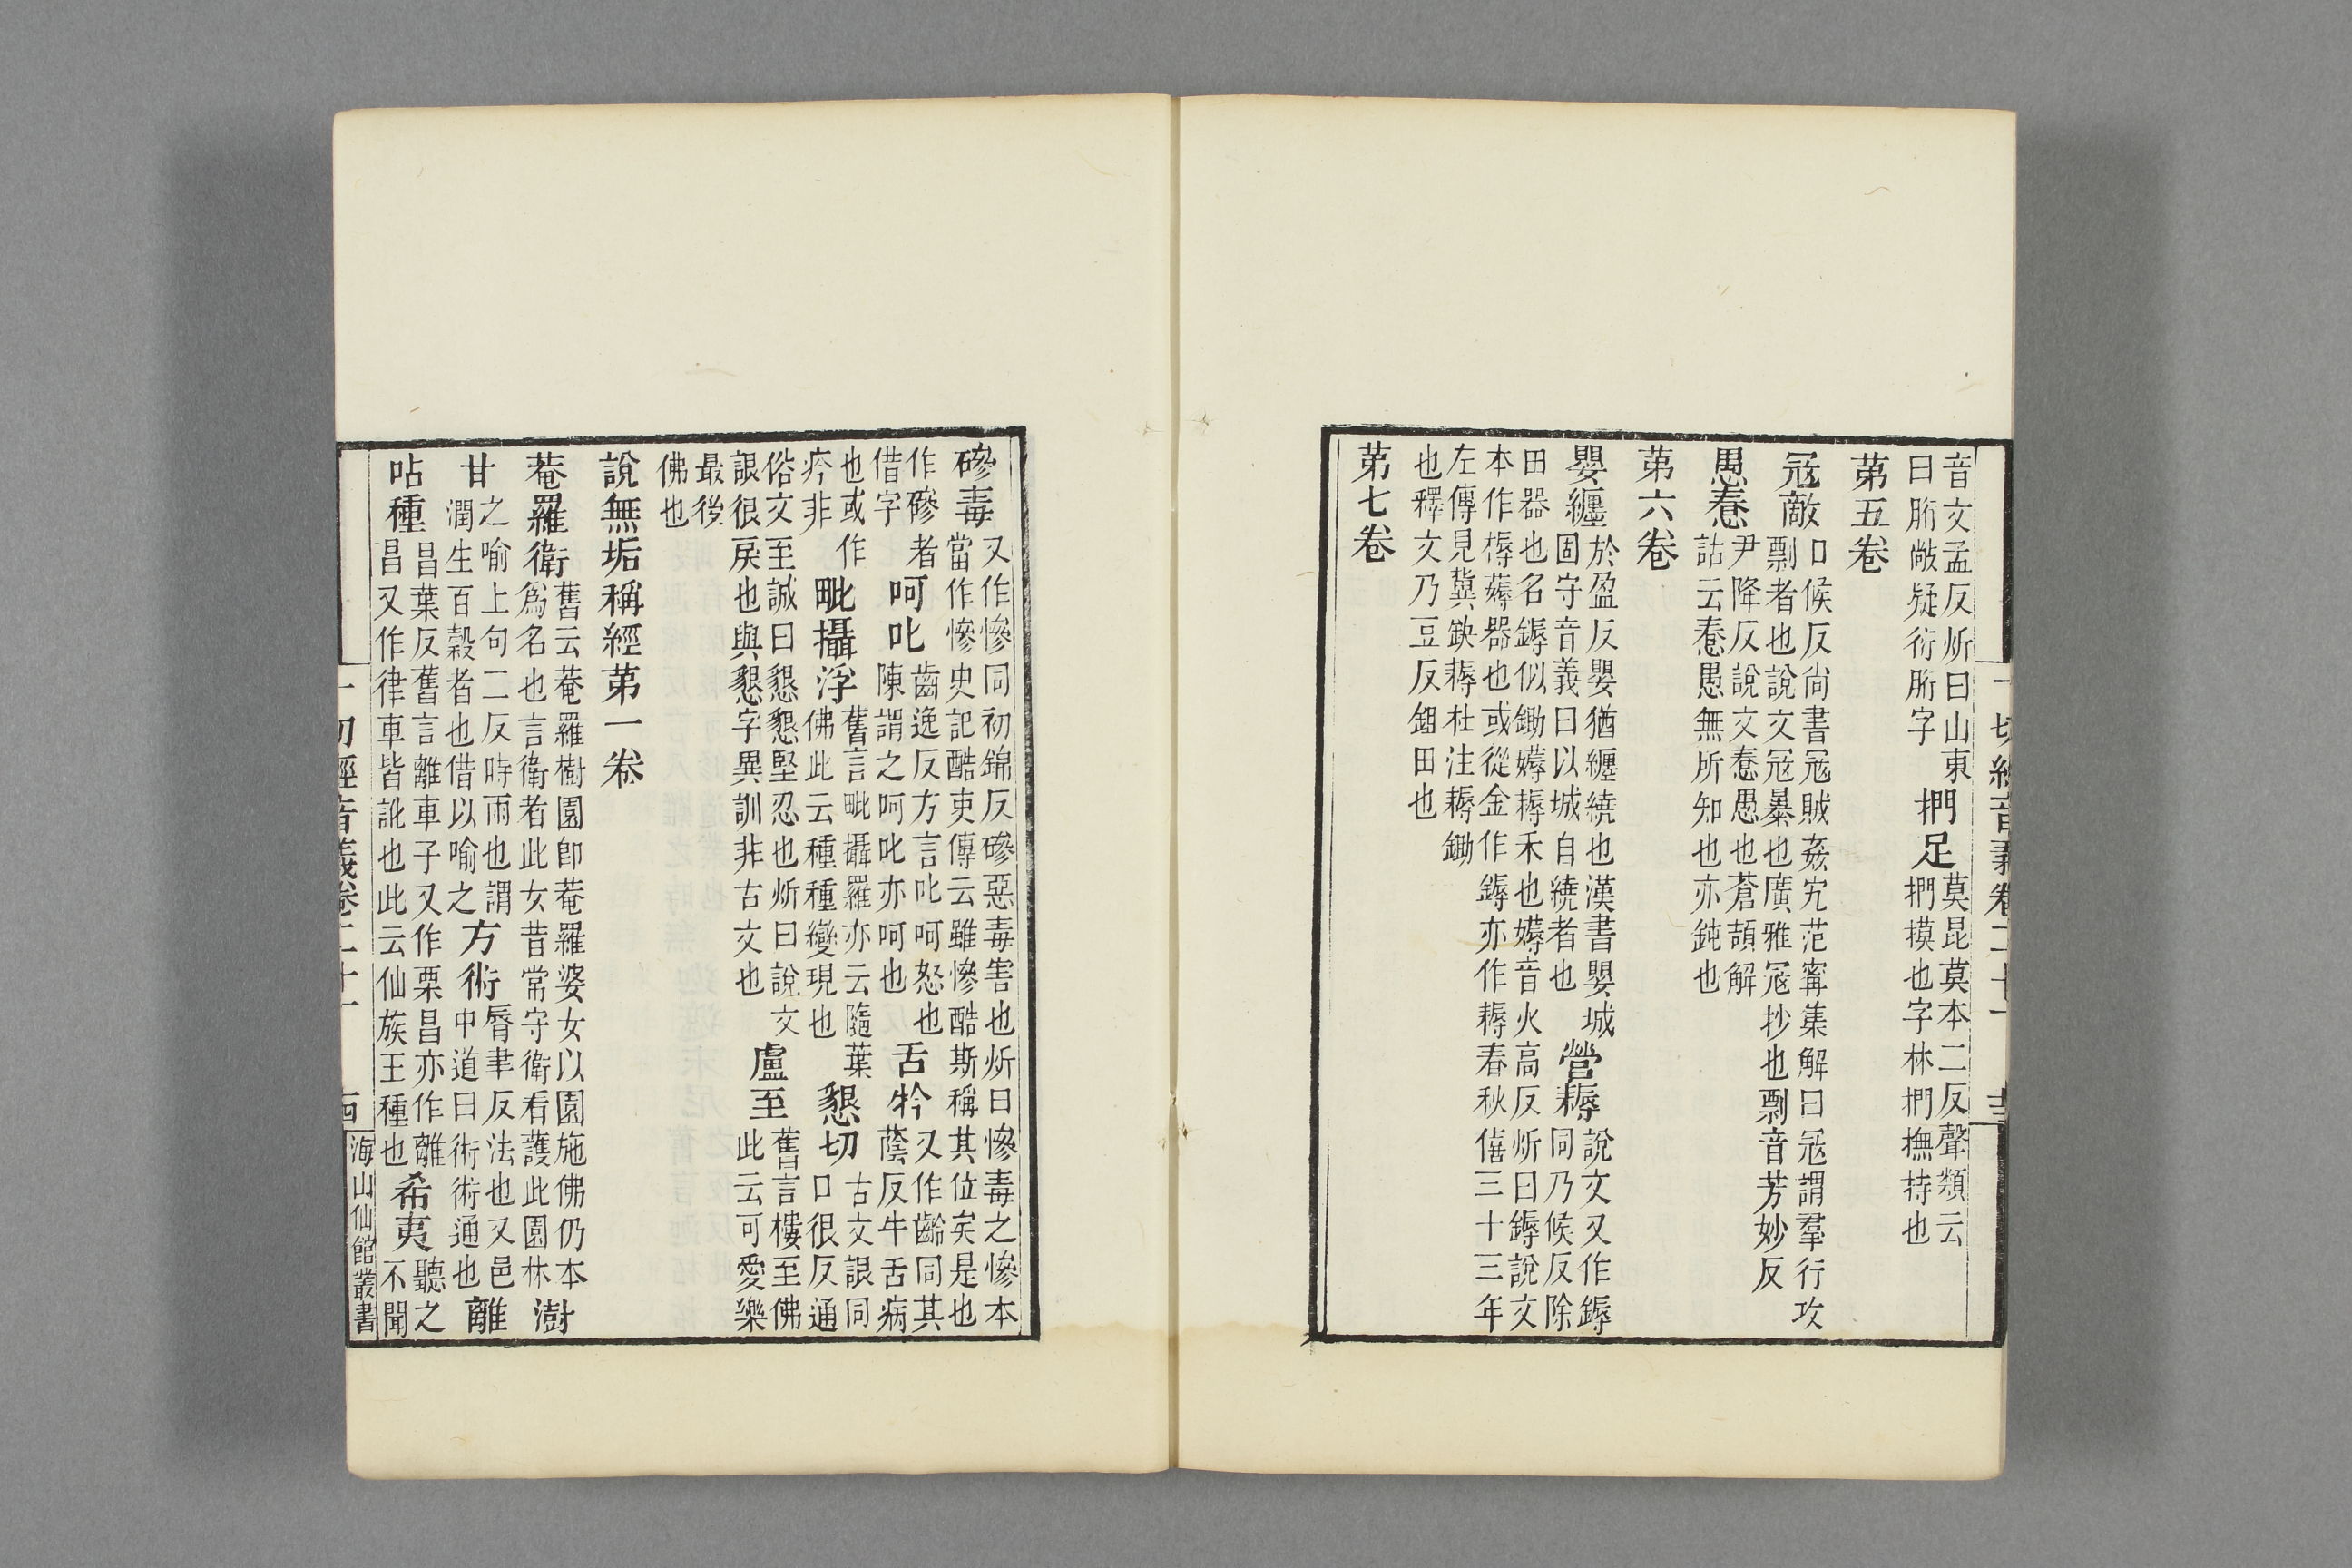 一切經音義卷二十一
十三
音文孟反炘曰山東
曰䏡敞疑衍䏡字
捫足
莫昆莫本二反聲類云
捫摸也字林捫撫持也
第五卷
冦敵
口候反尙書冦賊姦宄范甯集解曰冦謂羣行攻
剽者也說文冦暴也廣雅冦抄也剽音芳妙反
愚惷
尹降反說文惷愚也蒼頡解
詁云惷愚無所知也亦鈍也
第六卷
嬰纏
於盈反嬰猶纏繞也漢書嬰城
固守音義曰以城自繞者也
營耨
說文又作鎒
同乃候反除
田器也名鎒似鋤媷耨禾也媷音火高反炘曰鎒說文
本作槈薅器也或從金作鎒亦作耨春秋僖三十三年
左傳見冀缺耨杜注耨鋤
也釋文乃豆反鉏田也
第七卷
磣毒
又作慘同初錦反磣惡毒害也炘曰慘毒之慘本
當作慘史記酷吏傳云雖慘酷斯稱其位矣是也
作磣者
借字
呵叱
齒逸反方言叱呵怒也
陳謂之呵叱亦呵也
舌㸧
又作齡同其
蔭反牛舌病
也或作
疥非
毗攝浮
舊言毗攝羅亦云隨葉
佛此云種種變現也
懇切
古文詪同
口很反通
俗文至誠曰懇懇堅忍也炘曰說文
詪很戾也與懇字異訓非古文也
盧至
舊言樓至佛
此云可愛樂
最後
佛也
說無垢稱經第一卷
菴羅衛
舊云菴羅樹園卽菴羅婆女以園施佛仍本
爲名也言衛者此女昔常守衛看護此園林
澍
甘
之喻上句二反時雨也謂
潤生百穀者也借以喻之
方術
脣聿反法也又邑
中道曰術術通也
離
呫種
昌葉反舊言離車子又作栗昌亦作離
昌又作律車皆訛也此云仙族王種也
希夷
聽之
不聞
一切經音義卷二十一
西
海山仙館叢書